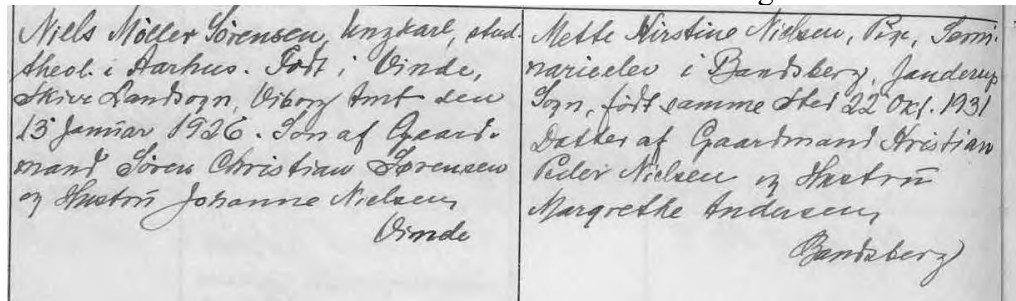 Niels Møller Sørensen, Ungkarl, stud.
theol. i Aarhus. Født i Vinde,
Skive Landsogn, Viborg Amt den
15 Januar 1926. Søn af Gaard-
mand Søren Christian Sørensen
og Hustru Johanne Nielsen,
Vinde
Mette Kirstine Nielsen, Pige, Semi-
narieelev i Bandsberg, Janderup
Sogn, født samme Sted 22 Okt. 1931
Datter af Gaardmand Kristian
Peder Nielsen og Hustru
Margrethe Andersen,
Bandsberg